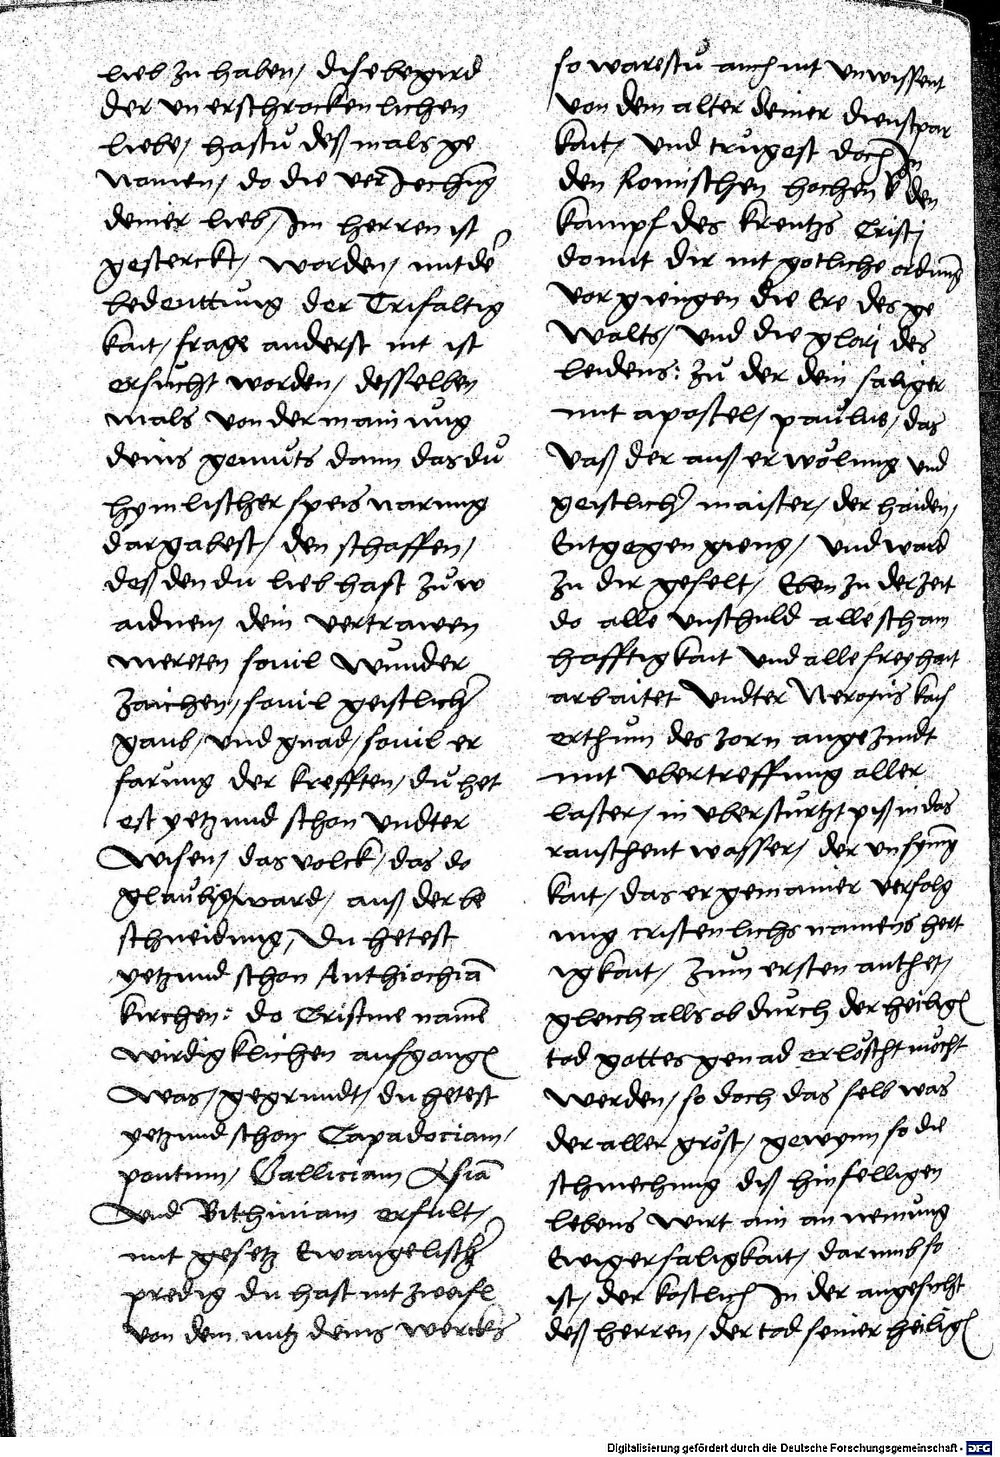 lieb zu haben / dise begird
der un erschrockenlichen
liebe / hastu deß mals ge
nomen / do die ver Jechu̅g
deiner lieb / Jm herren ist
gesterckt / worden / mit de̅
bedeuttung der Trifaltig
kait / frage anderst nit ist
ersucht worden / desselben
mals von der mainung
deins gemüts dann das du
hymlischer speis narung
dargabest / den schaffen /
deß den du lieb hast zu w
aidnen / dein vertrawen
mereten souil wunder
zaichen / souil geistlicher
gaub / und gnad / souil er
farung der krefften / du het
est yetzund schon undter
wisen / das volck / das do
glaubig ward / auß der be
schneidung / Du hetest
yetzund schon Anthiochia̅
kirchen : do Cristine name̅
wirdigklichen aufgange̅
was / gegrundt / du hetest
yetzund schon Capadociam /
pontum / Galliciam Asia̅
und Bithiniam erfult /
mit gesetz Ewangelischer
predig du hast nit zweifl
von dem nutz deins wercks
so warestu auch nit unwissent
von dem alter deiner dienstpar
kait / und trugest doch Jn
den Romischen hochen den
kampf des kreutzs Cristi
domit dir nit gotliche ordnu̅g
vor giengen die Ere des ge
walts / und die glori des
leidens : zu der dein saliger
mit apostel / paulus / das
vaß der auß erwölung und
geistlicher maister / der haiden /
Entgegen gieng / und ward
zu dir geselt / Eben zu der zeit
do alle unschuld alle scham
hafftigkait und alle freyhait
arbaitet undter Neronis kais
erthum des zorn angezindt
mit ubertreffung aller
laster / in ubersturtzt piß in das
rauschent wasser / der unsynnig
kait / das er gemainer verfolg
ung cristenlichs namens hert
igkait / zum ersten anthet /
gleich alls ob durch der heilige̅
tod gottes genad erlöscht möcht
werden / so doch das selb was
der aller gröst / gewynn so die
schmechung diß hinfelligen
lebens wirt ain an nemung
Ewiger saligkait / darumb so
ist / der kostlich Jn der angesicht
deß herren / der tod seiner heilige̅
Digitalisierung gefördert durch die Deutsche Forschungsgemeinschaft - DFG